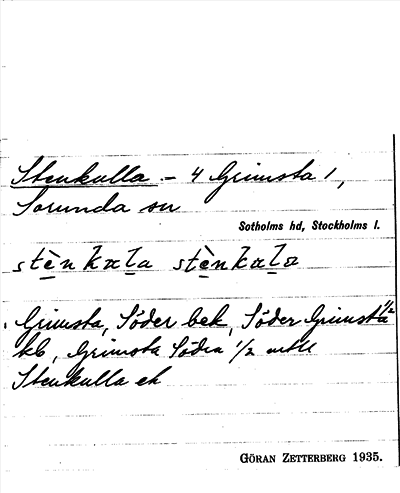 Stenkulla – 4 Grimsta 1,
Sorunda sn
Sotholms hd, Stockholms l.
Grimsta, Söder bek, Söder Grimsta 1/2
kb, Grimsta Södra 1/2 mtl
Stenkulla ek
GÖRAN ZETTERBERG 1935.